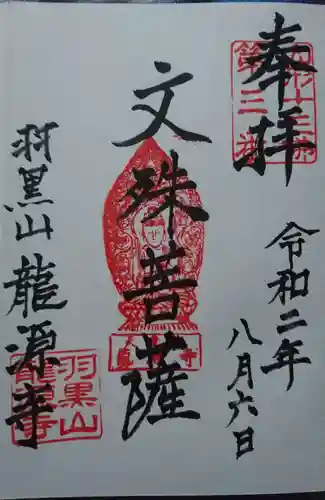 奉拝
令和二年
八月六日
文殊菩薩
羽黒山龍源寺
第三
羽黒山
龍源寺